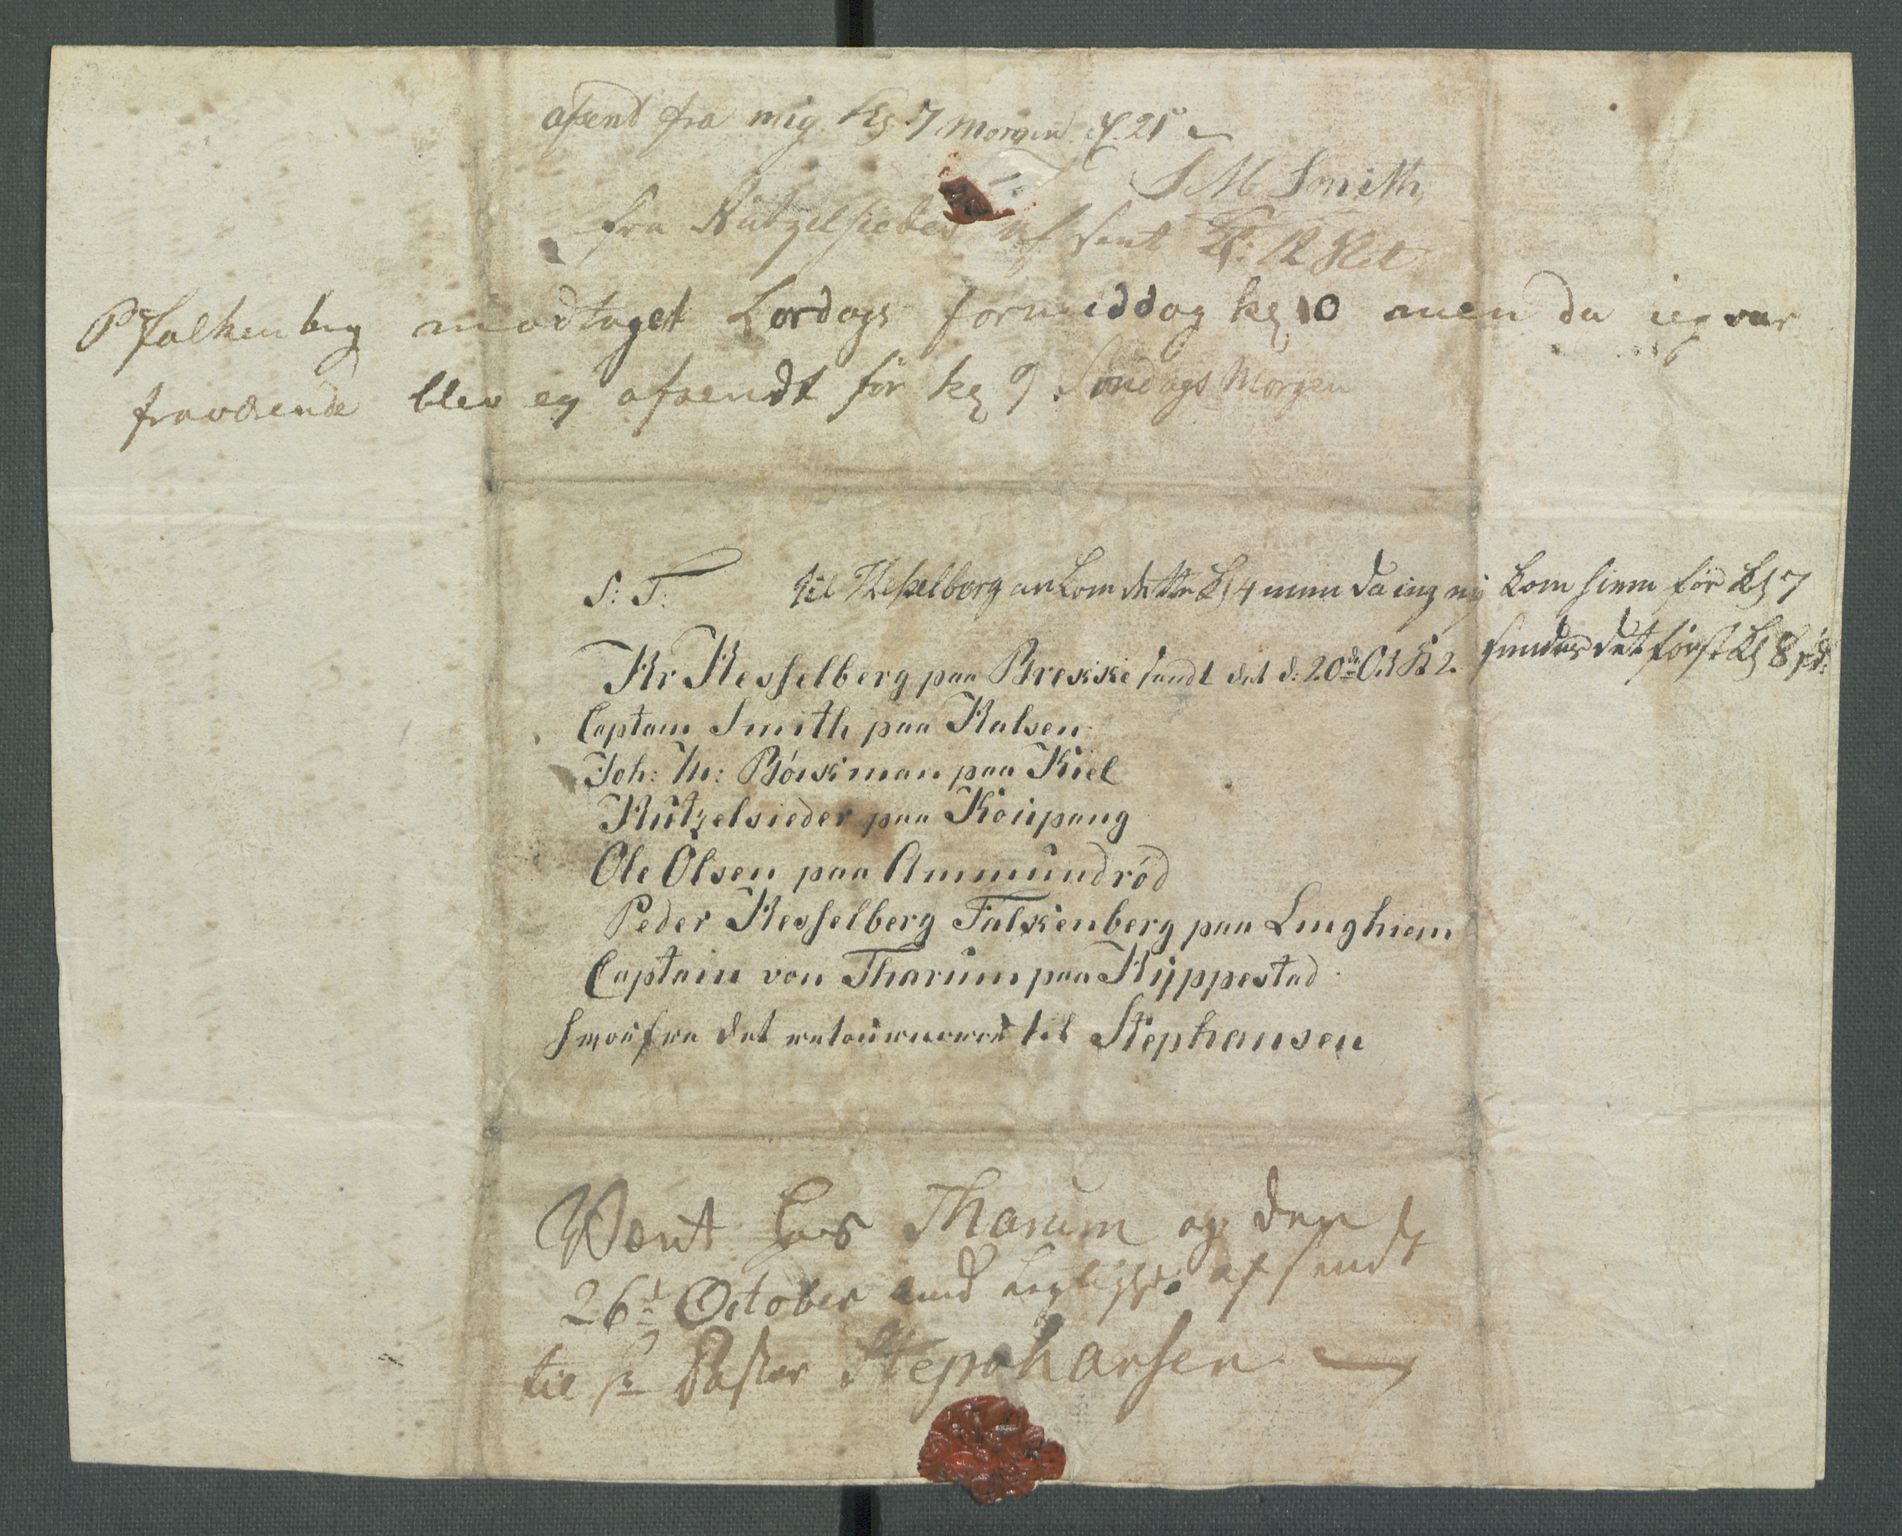 afsendt fra mig Kl 7 Morgen d 21
S M Smith
fra Kutzelsieder afsent Kl: 12 Slet
P Falkenberg modtaget Lördags formiddag kl 10 men da ieg var
fraværende blev ey afsendt för kl 9 Söndags Morgen
S: T: til Hesselberg ankom dette Kl 4 men da ieg ey kom hiem för Kl 7
sendes det först Kl 8 sl:
Hr Hesselberg paa Brekke sendt det d: 20de Oct Kl 2.
Captain Smith paa Halsen
Joh: M: Börkman paa Kiel
Kutzelsieder paa Koupang
Ole Olsen paa Ammundröd
Peder Hesselberg Falkenberg paa Linghiem
Captain von Tharum paa Hyppestad
hvorfra det retourneres til Stephansen
Værit hos Tharum og den
26d October afsendt
til Hr Pastor Stepohansen